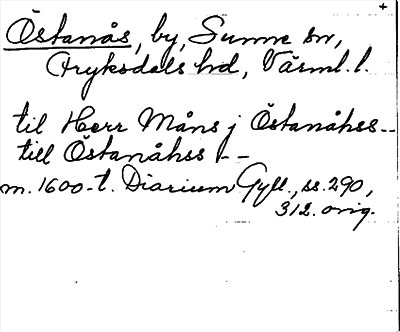 +
Östanås, by, Sunne sn,
Fryksdals hd, Värml. l.
til Herr Måns j Östanåhss --
till Östanåhss --
m. 1600-t. Diarium Gyll., ss. 290,
312. orig.